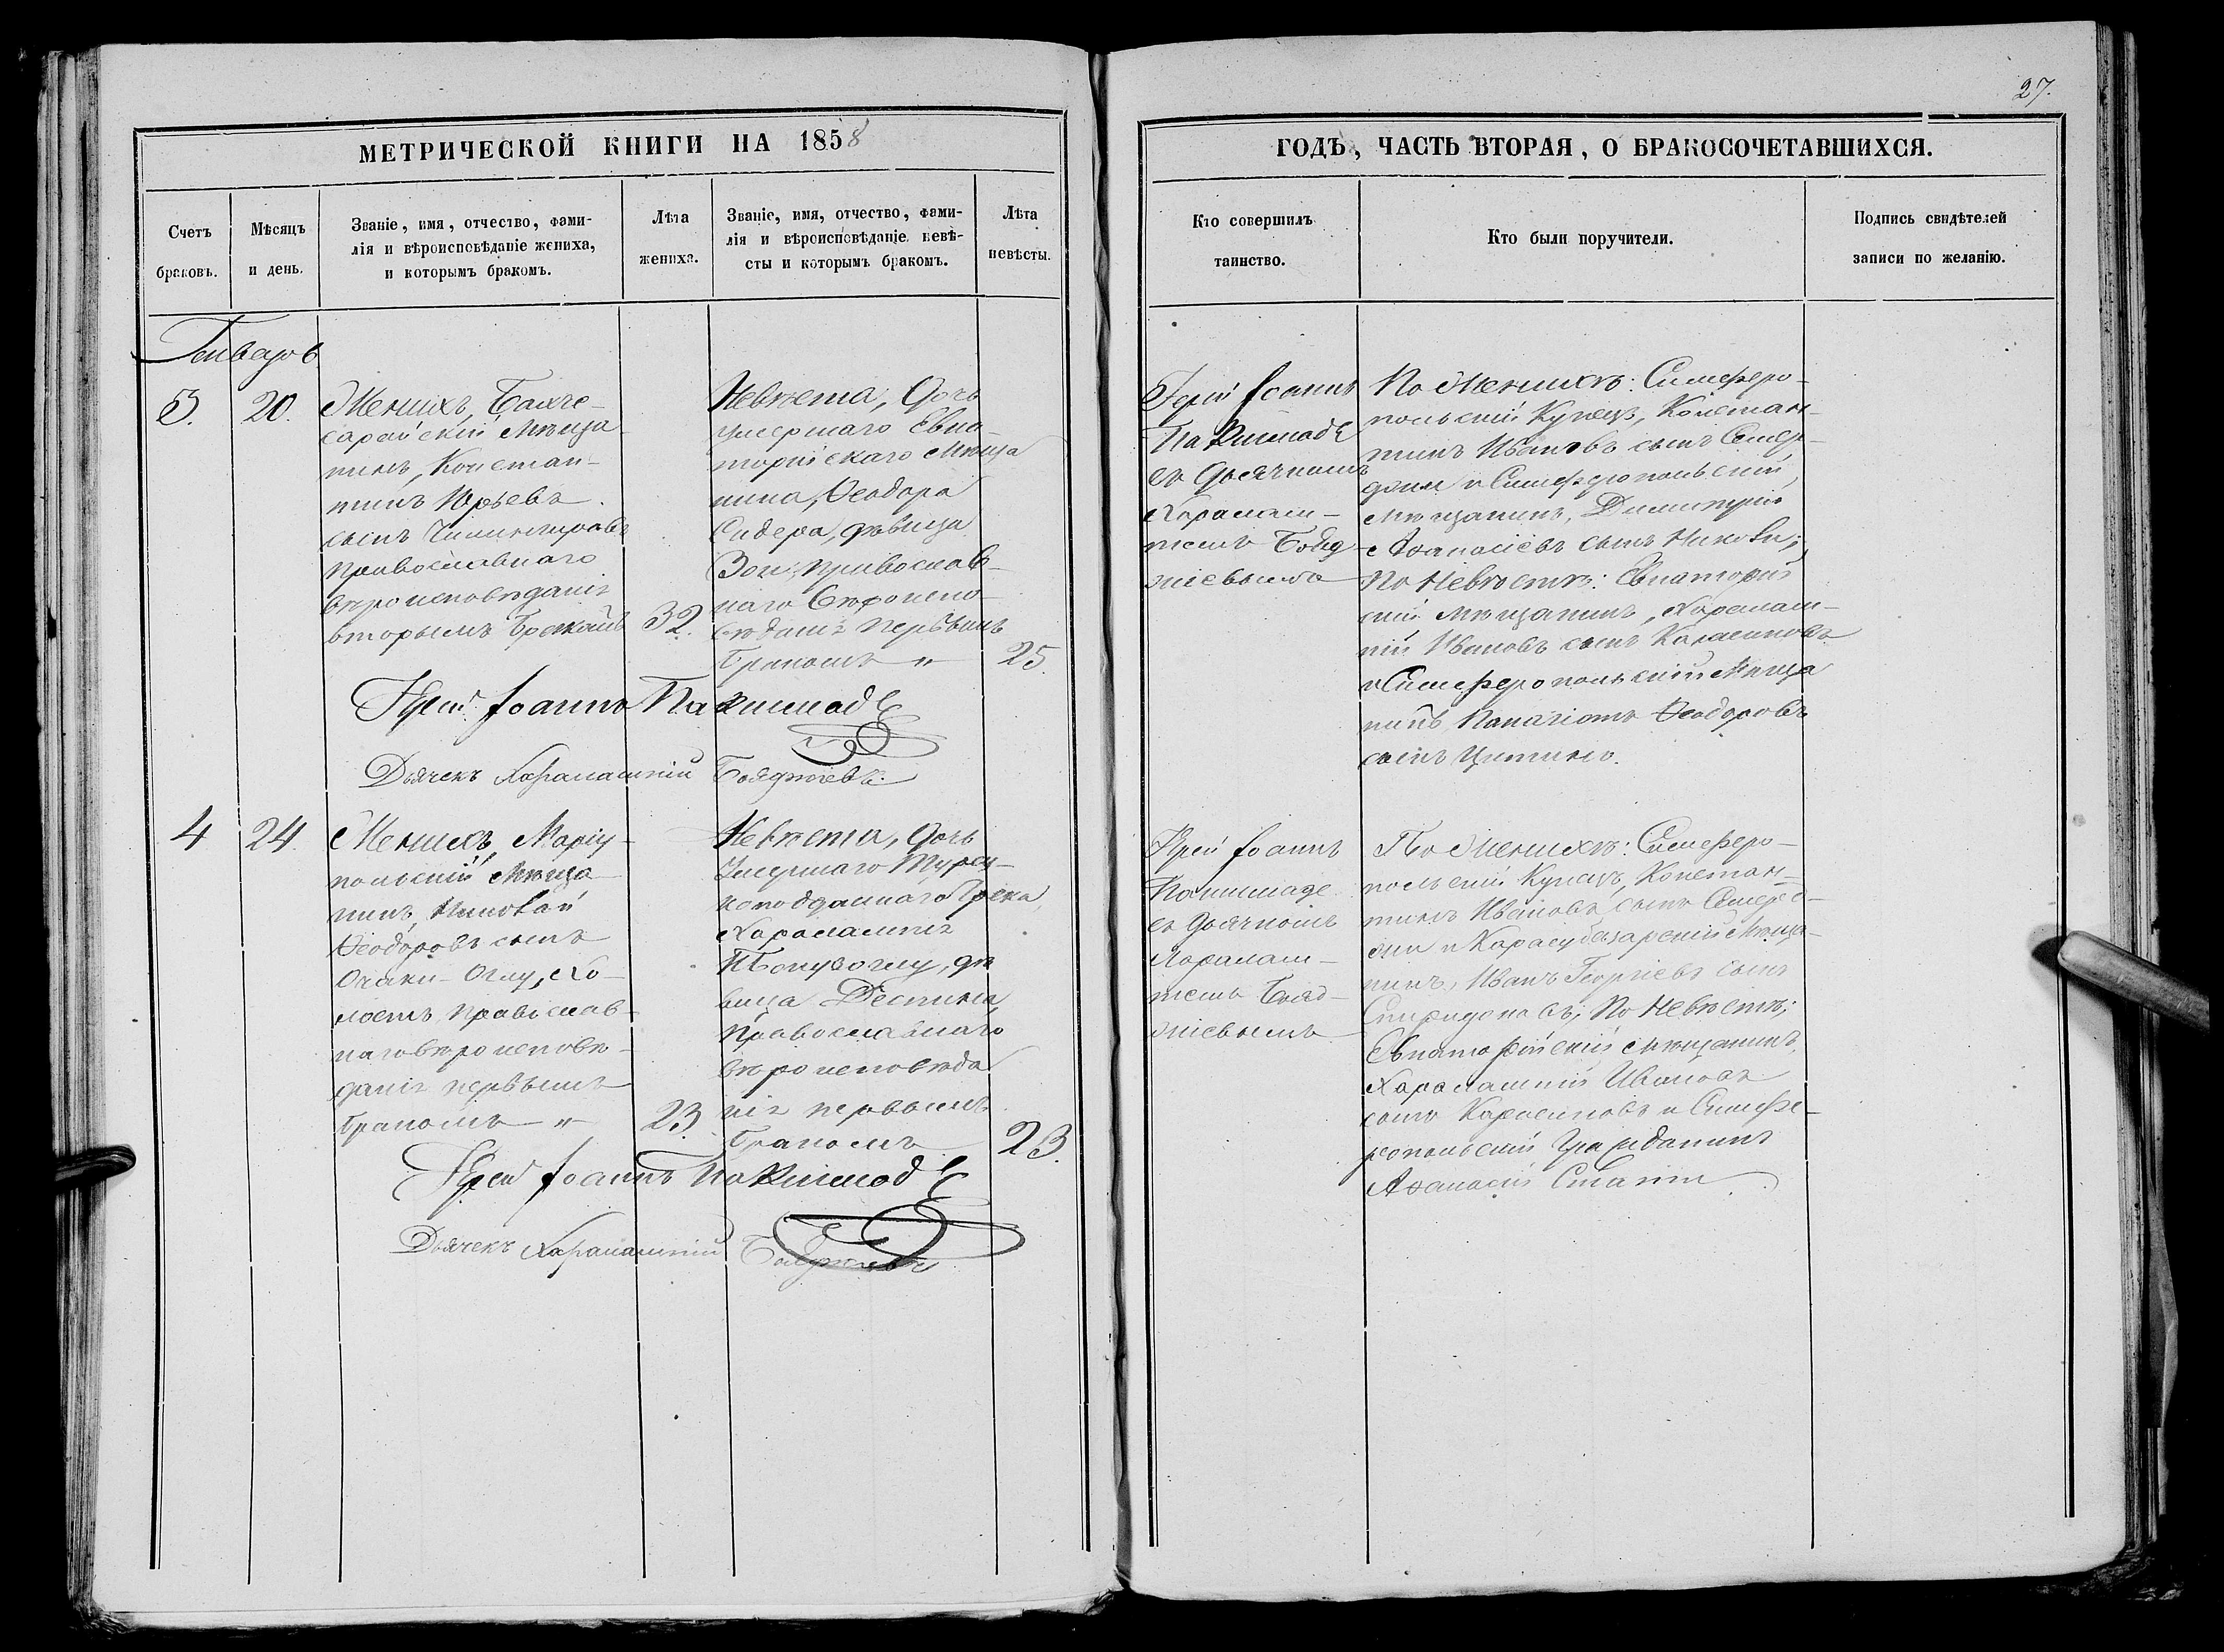 27.
МЕТРИЧЕСКОЙ КНИГИ НА 1858
ГОДЪ, ЧАСТЬ ВТОРАЯ, О БРАКОСОЧЕТАВШИХСЯ.
Счетъ
браковъ.
Мѣсяцъ
и день.
Званіе, имя, отчество, фами-
лія и вѣроисповѣданіе жениха,
и которымъ бракомъ.
Лѣта
жениха.
Званіе, имя, отчество, фами-
лія и вѣроисповѣданіе невѣ-
сты и которымъ бракомъ.
Лѣта
невѣсты.
Кто совершилъ
таинство.
Кто были поручители.
Подпись свидѣтелей
записи по желанію.
Генварь
3.
20.
Женихъ, Бахче-
сарайскій Мѣща
нинъ, Констан-
тинъ Юрьевъ
сынъ
православнаго
вѣроисповѣданія
вторымъ бракомъ
32.
Невѣста, дочь
умершаго Евпа-
торійскаго Мѣща
нина, Ѳеодора
Сидера, дѣвица
Зои, православ-
наго вѣроиспо-
вѣданія первымъ
бракомъ "
25.
Іерей Іоаннъ
съ дьячкомъ
Харалам-
піемъ Бояд-
жіевымъ
По Женихѣ: Симферо-
польскій Купецъ, Констан-
тинъ Ивановъ сынъ Семер-
джи и Симферопольскій
Мѣщанинъ, Димитрій
Аѳанасіевъ сынъ Николи;
По Невѣстѣ: Евпаторій
скій Мѣщанинъ, Харалам-
пій Ивановъ сынъ Карасиновъ
и Симферопольскій Мѣща
нинъ Панаіотъ Ѳеодоровъ
сынъ
Іерей Іоаннъ
Дьячекъ Харалампій Бояджіевъ
4
24.
Женихъ, Маріу-
польскій Мѣща
нинъ Николай
Ѳеодоровъ сынъ
Оглу, Хо-
лостъ, православ-
наго вѣроисповѣ-
данія первымъ
бракомъ "
23.
Невѣста, дочь
Умершаго Турец-
коподданнаго Грека,
Харалампія
дѣ
вица Деспина,
Православнаго
вѣроисповѣда
нія первымъ
бракомъ
23.
Іерей Іоаннъ
съ дьячкомъ
Харалам-
піемъ Бояд-
жіевымъ
По Женихѣ: Симферо-
польскій Купецъ, Констан-
тинъ Ивановъ сынъ Семерд-
жи и Карасубазарскій Мѣща-
нинъ, Иванъ Георгіевъ сынъ
По Невѣстѣ;
Евпаторійскій Мѣщанинъ,
Харалампій Ивановъ
сынъ Карасиновъ и Симфе-
ропольскій Гражданинъ
Аѳанасій
Іерей Іоаннъ
Дьячекъ Харалампій Бояджіевъ